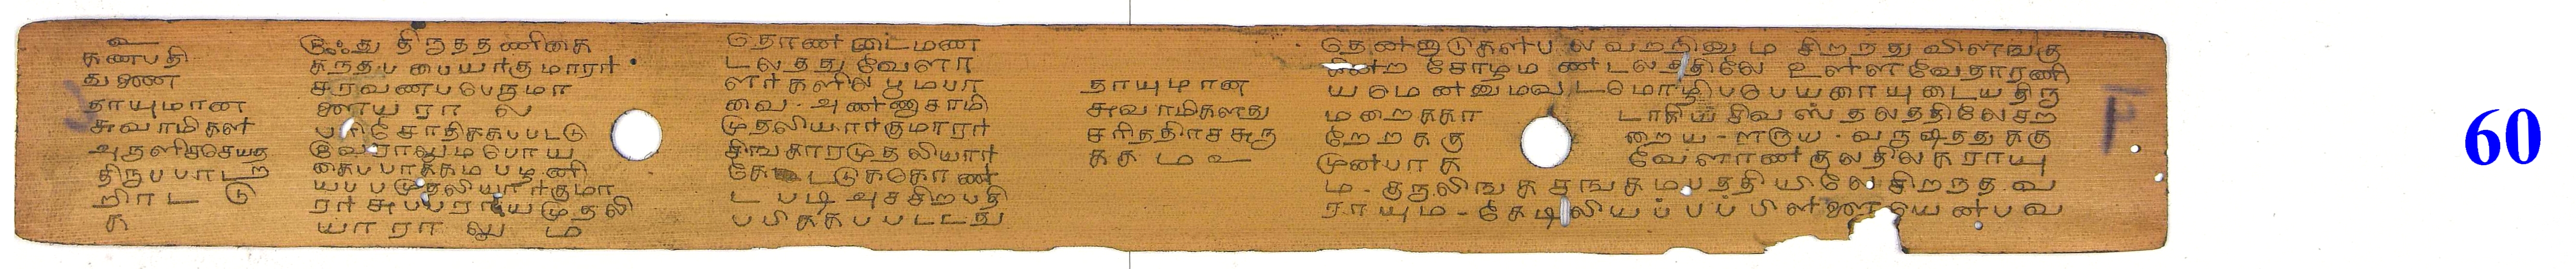 உ
கணபதி
துணை
தாயுமான
சுவாமிகள்
அருளிச்செய்த
திருப்பாடற்
றிரட்டு
க
இஃது திருத்தணிகை
கந்தப்பையர்குமாரர்
சரவணப்பெருமா
ளையரால்
பரிசோதிக்கப்பட்டு
வேரலும்போய
கைப்பாக்கம் பழனி
யப்பமுதலியார்குமா
ரர் சுப்பராயமுதலி
யாராலும்
தொண்டைமண
டலத்துவேளா
ளர்களில் பூம்பா
வை - அண்ணாசாமி
முதலியார்குமாரர்
சிங்காரமுதலியார்
கேட்டுக்கொண்
டபடி அச்சிற்பதி
ப்பிக்கப்பட்டது
தாயுமான
சுவாமிகளது
சரித்திரச்சுரு
க்கம் உ
தென்னாடுகள்பலவற்றினும் சிறந்து விளங்கு
கின்ற சோழமண்டலத்திலே உள்ள வேதாரணி
யமென்னும்வடமொழிப்பெயரையுடைய திரு
மறைக்கா டாகிய சிவஸ்தலத்திலே சற்
றேறக்கு றைய - ளரூய - வருஷத்துக்கு
முன்பாக வேளாண்குலதிலகராயு
ம் - குருலிங்கசங்கமபத்தியிலே சிறந்தவ
ராயும் - கேடிலியப்பப்பிள்ளையென்பவ
60